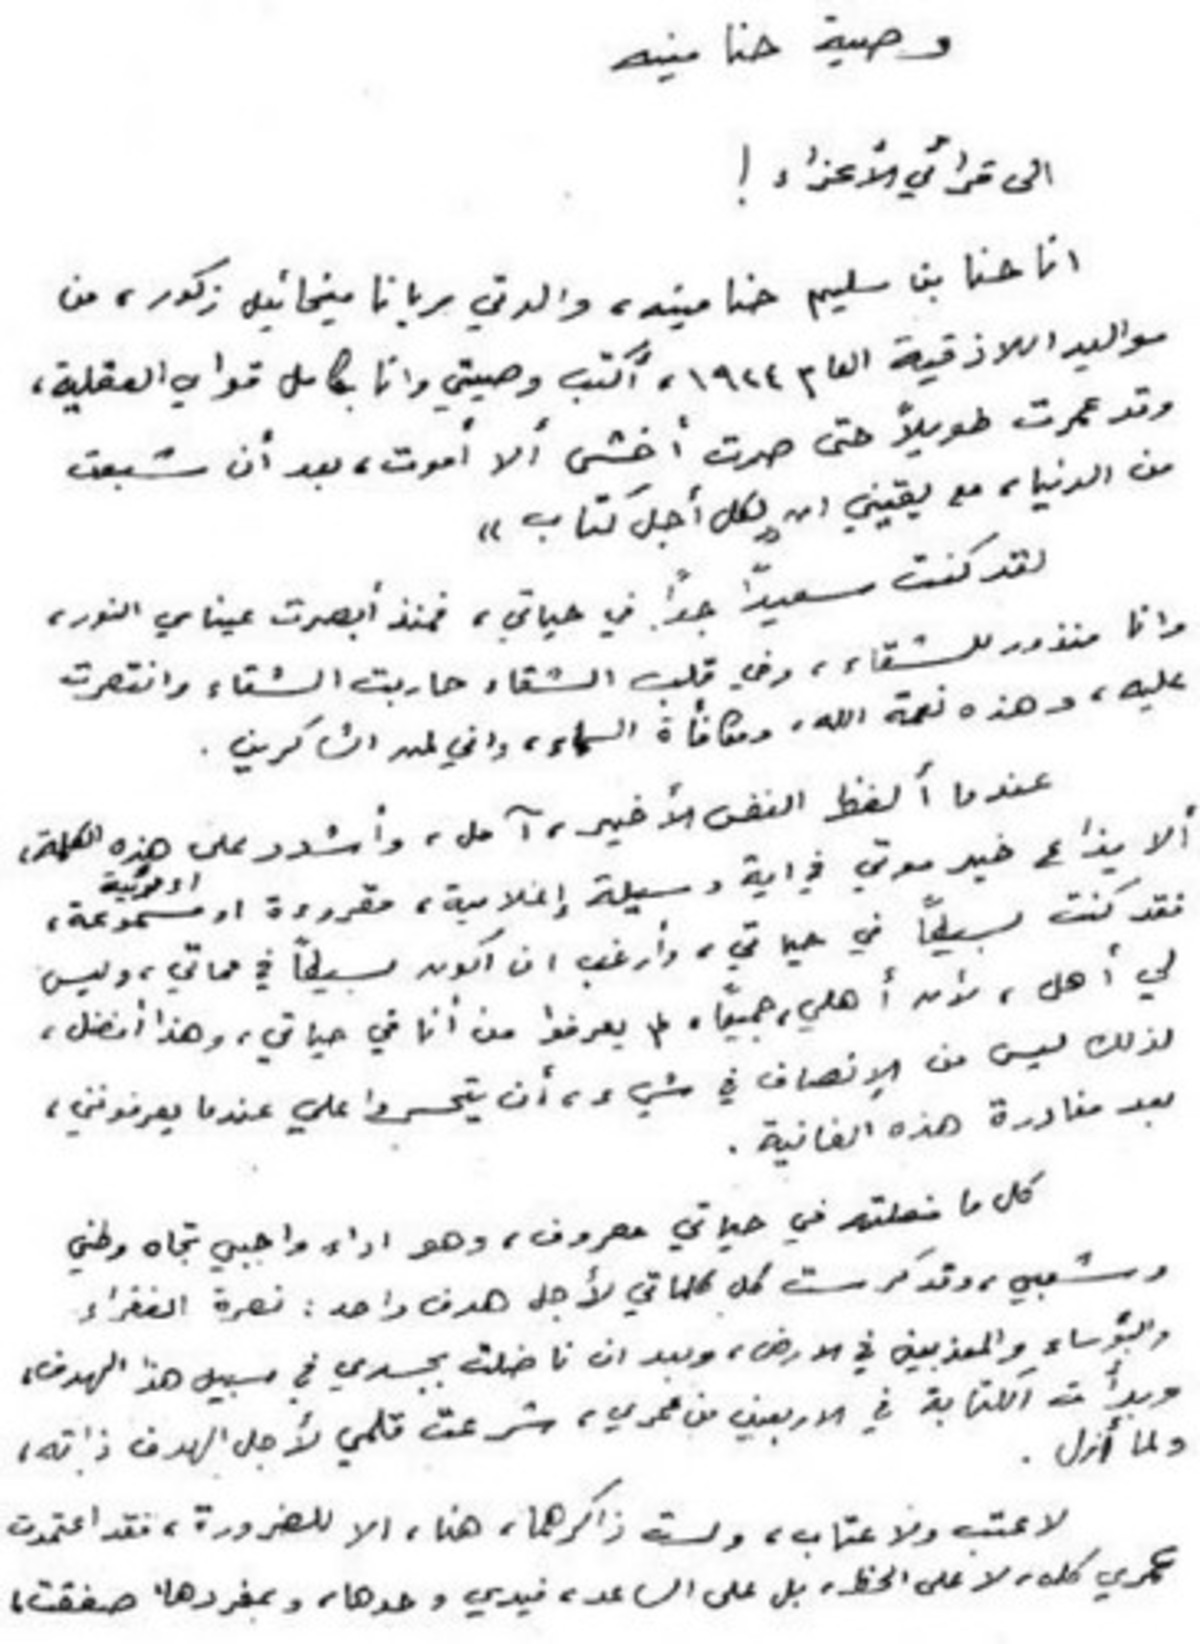 وصية حنا مينه
الى قرائي الأعزاء !
انا حنا بن سليم حنا مينه، والدتي مريانا ميخائيل زكور، من
مواليد اللاذقية العام ١٩٢٤، أكتب وصيتي وانا بكامل قواي العقلية،
وقد عمرت طويلاً حتى صرت أخشى ألا أموت، بعد أن شبعت
من الدنيا، مع يقيني ان «لكل أجل كتاب»
لقد كنت سعيداً جداً في حياتي، فمنذ أبصرت عيناي النور،
وانا منذور للشقاء، وفي قلب الشقاء حاربت الشقاء وانتصرت
عليه، وهذه نعمة الله، ومكافأة السماء، واني لمن الشاكرين .
عندما ألفظ النفس الأخير، آمل، وأشدد على هذه الكلمة،
ألا يذاع خبر موتي في اية وسيلة إعلامية، مقروءة او مسموعة، او مرئية
فقد كنت بسيطاً في حياتي، وأرغب ان اكون بسيطاً في مماتي، وليس
لي أهل، لأن أهلي، جميعاً، لم يعرفوا من أنا في حياتي، وهذا أفضل،
لذلك ليس من الإنصاف في شيء، أن يتحسروا علي عندما يعرفونني،
بعد مغادرة هذه الفانية .
كل ما فعلته في حياتي معروف، وهو اداء واجبي تجاه وطني
وشعبي، وقد كرست كل كلماتي لأجل هدف واحد : نصرة الفقراء
والبؤساء والمعذبين في الارض، وبعد ان ناضلت بجسدي في سبيل هذا الهدف،
وبدأت الكتابة في الاربعين من عمري، شرعت قلمي لأجل الهدف ذاته،
ولما أزل .
لا عتب ولا عتاب، ولست ذاكرهما، هنا، الا للضرورة، فقد اعتمدت
عمري كله، لا على الحظ، بل على الساعد، فيدي وحدها، وبمفردها، صفقت،